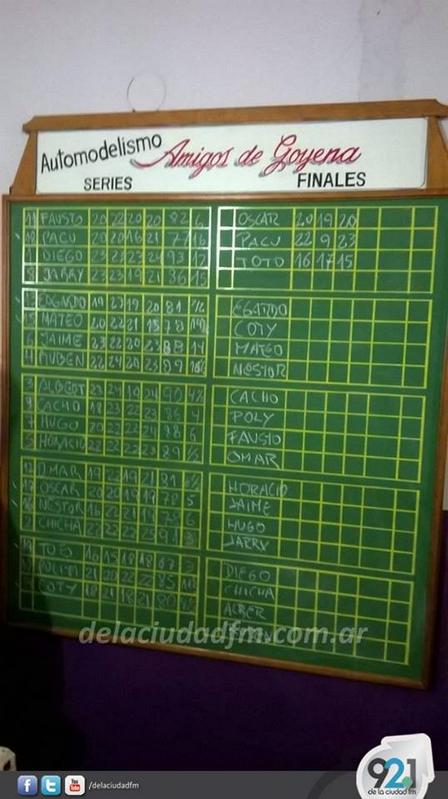 Automodelismo Amigos de Goyena
SERIES FINALES
11 FAUSTO 20 22 20 20 82 6
10 PACU 20 20 16 21 77 16
DIEGO 23 23 23 24 93 12
8 JARRY 23 23 19 21 86 15
OSCAR 20 19 20
PACU 22 9 23
TOTO 16 17 15
13 EDGARDO 19 23 19 20 81
15 MATEO 20 22 21 15 78
6 JAIME 23 22 20 23 88 14
4 RUBEN 22 24 20 23 89
EGARDO
COTY
MATEO
NESTOR
3 ALBERT 23 24 19 24 90
9 CACHO 18 23 22 23 86 4
7 HUGO 20 22 22 24 88 6
5 HORACIO 22 22 22 23 89
CACHO
POLY
FAUSTO
OMAR
12 OMAR 19 22 19 21 81
17 OSCAR 20 20 19 19 78 5
16 NESTOR 16 22 21 19 78 6
2 CHICHA 22 22 22 25 91 3
HORACIO
JAIME
HUGO
JARRY
TOTO 16 15 18 18 67 3
21 20 22 22 85
COTY 18 21 18 21 80
DIEGO
CHICHA
ALBER
delaciudadfm.com.ar
/delaciudadfm
You Tube
92.1
de la ciudad fm